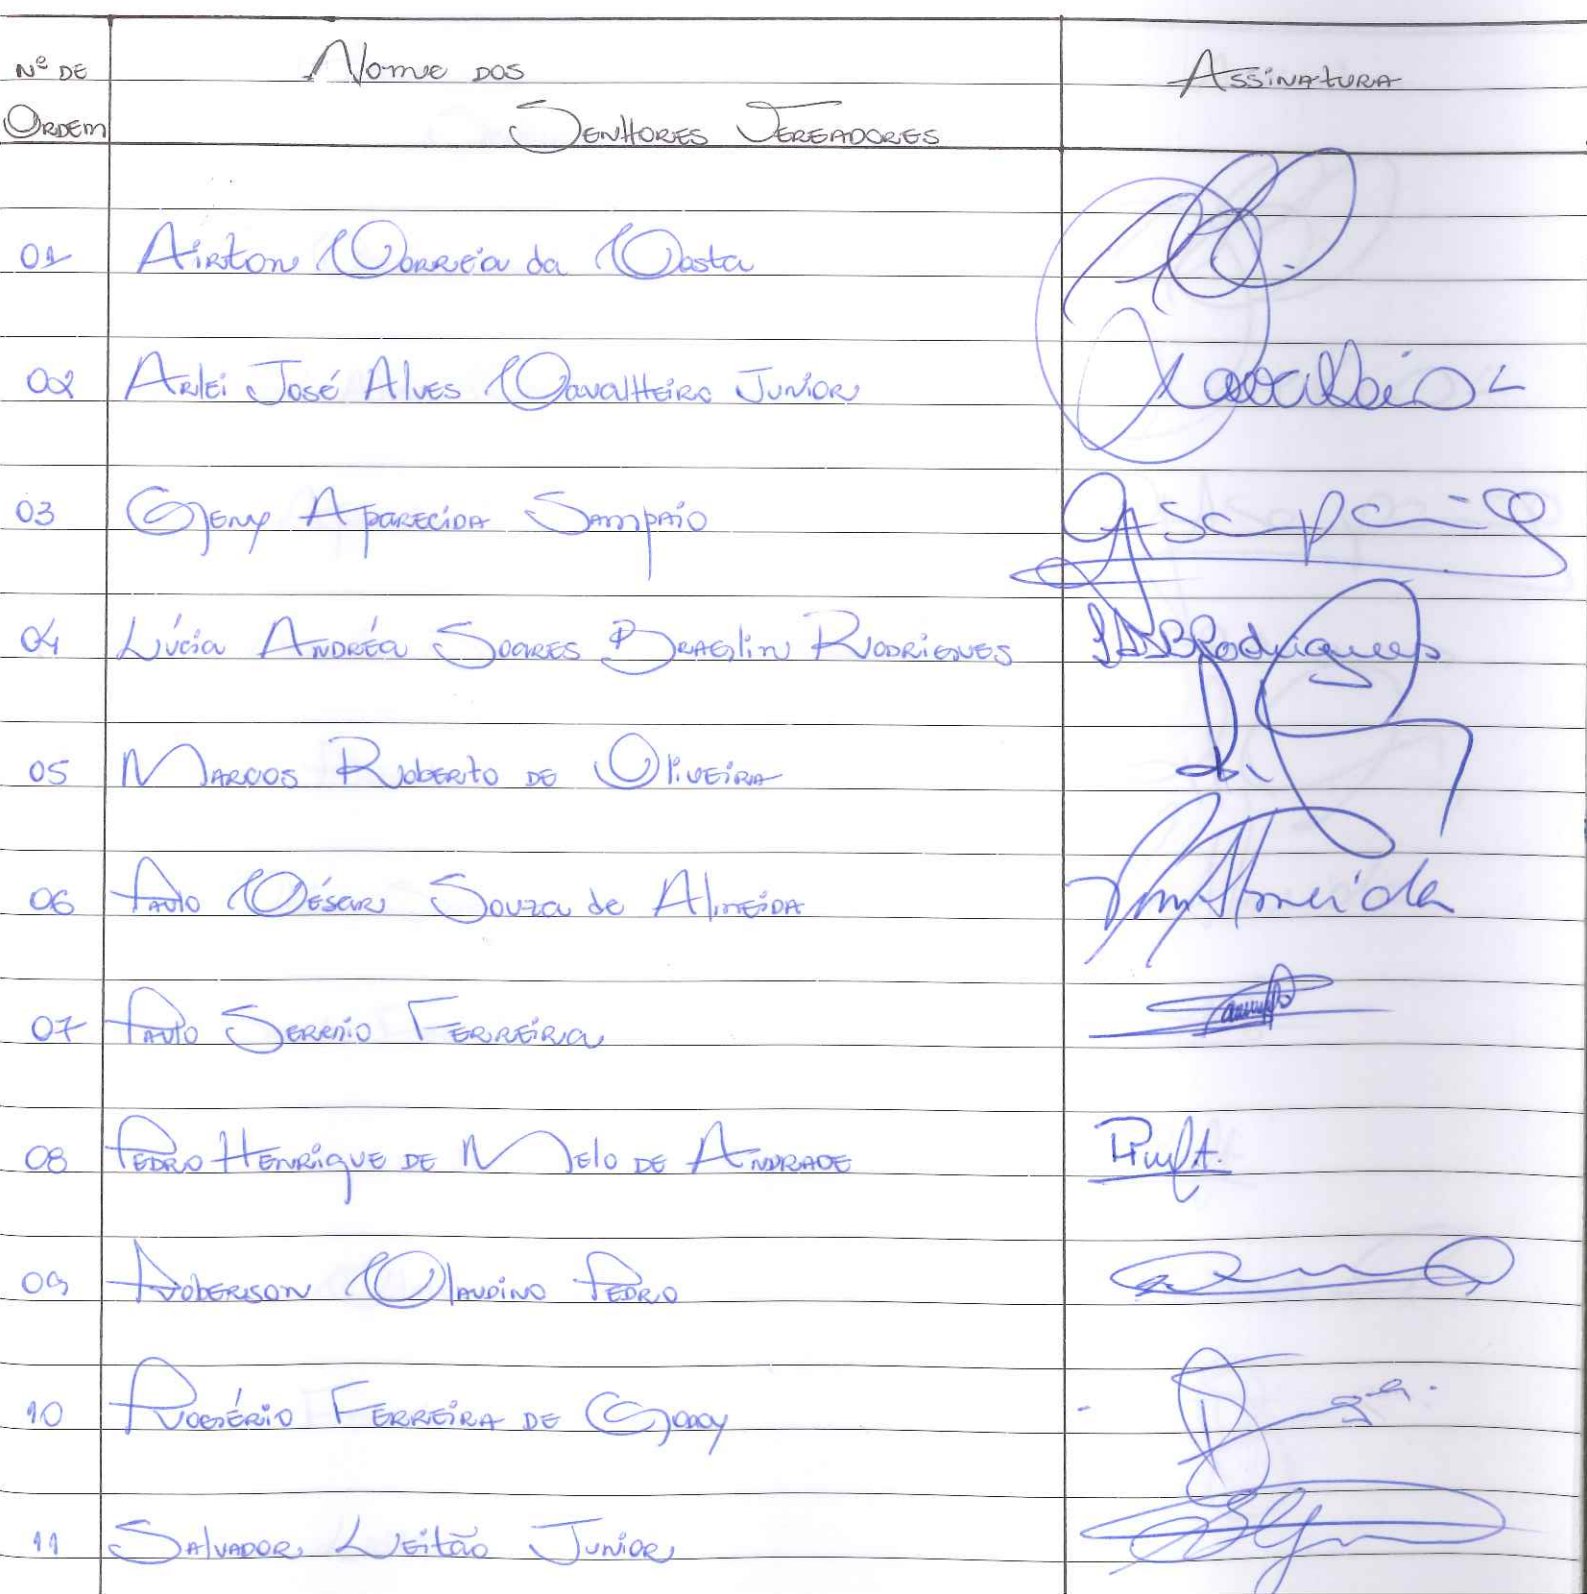 Nº DE Nome DOS ASSINATURA
ORDEM SENHORES VEREADORES
01 Airton Correia da Costa
02 Arlei José Alves Cavalheiro Junior
03 Geny Aparecida Sampaio
04 Lúcia Andréa Soares Braglin Rodrigues LASBRodrigues
05 Marcos Roberto de Oliveira
06 Paulo César Souza de Almeida Almeida
07 Paulo Sergio Ferreira
08 Pedro Henrique de Melo de Andrade
09 Roberson Claudino Pedro
10 Rogério Ferreira de Godoy
11 Salvador Leitão Junior